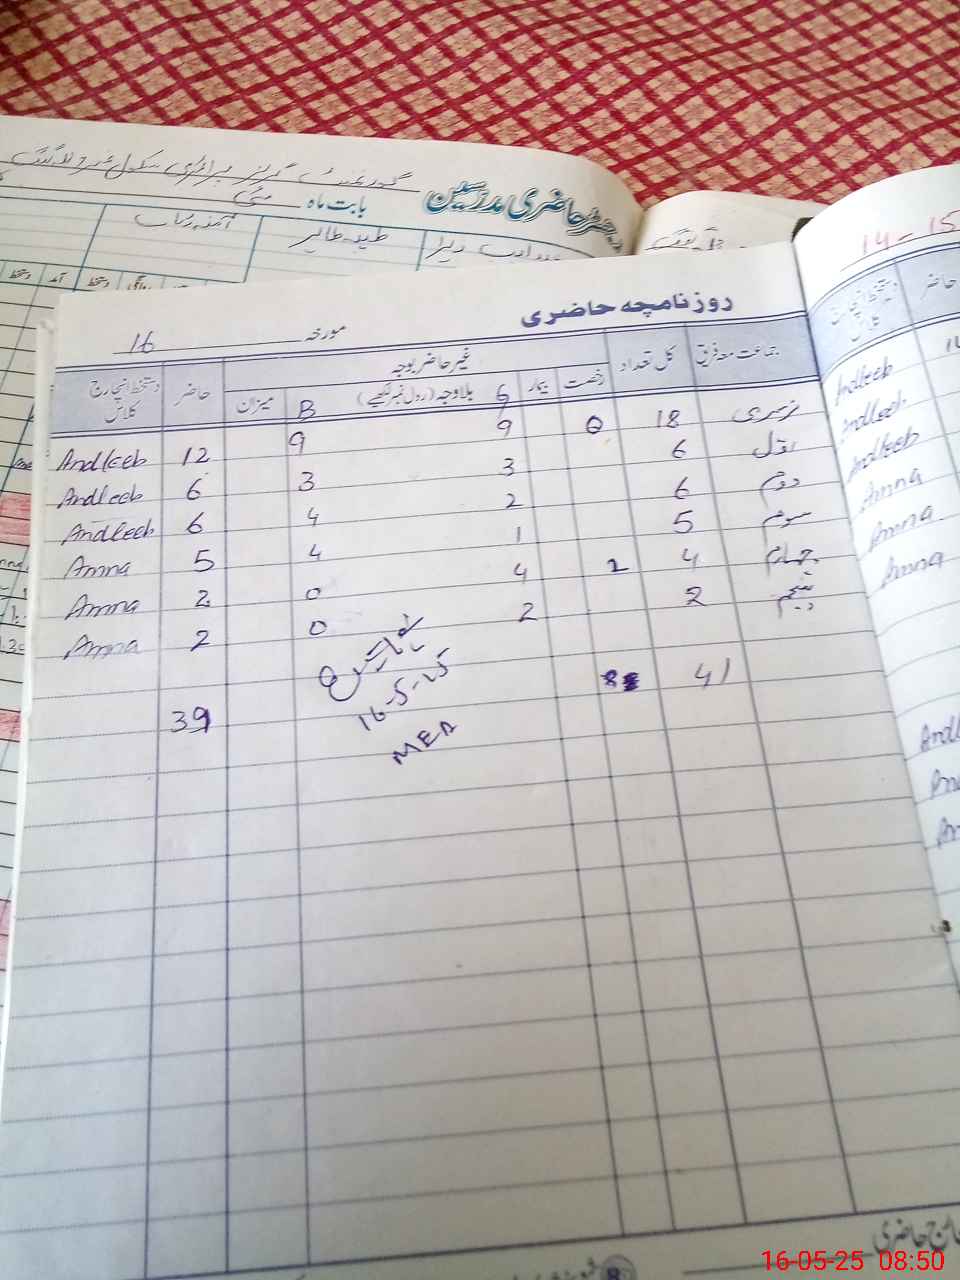 گورنمنٹ گرلز پرائمری سکول
رجسٹر حاضری مدرسین
بابت ماہ مئی
طیبہ طاہر
آمنہ
دستخط آمد دستخط روانگی
14-15
روزنامچہ حاضری
مورخہ 16
جماعت معہ فریق کل تعداد غیر حاضر بوجہ حاضر دستخط انچارج کلاس
رخصت بیمار G بلاوجہ (رول نمبر لکھیے) B میزان
نرسری 18 0 9 9 12 Andleeb
اول 6 3 3 6 Andleeb
دوم 6 2 4 6 Andleeb
سوم 5 1 4 5 Amna
چہارم 4 2 4 0 2 Amna
پنجم 2 2 0 2 Amna
41 39
16-5-25
MEA
حاضر دستخط انچارج کلاس
Andleeb
Andleeb
Andleeb
Amna
Amna
Amna
حاضری
16-05-25 08:50